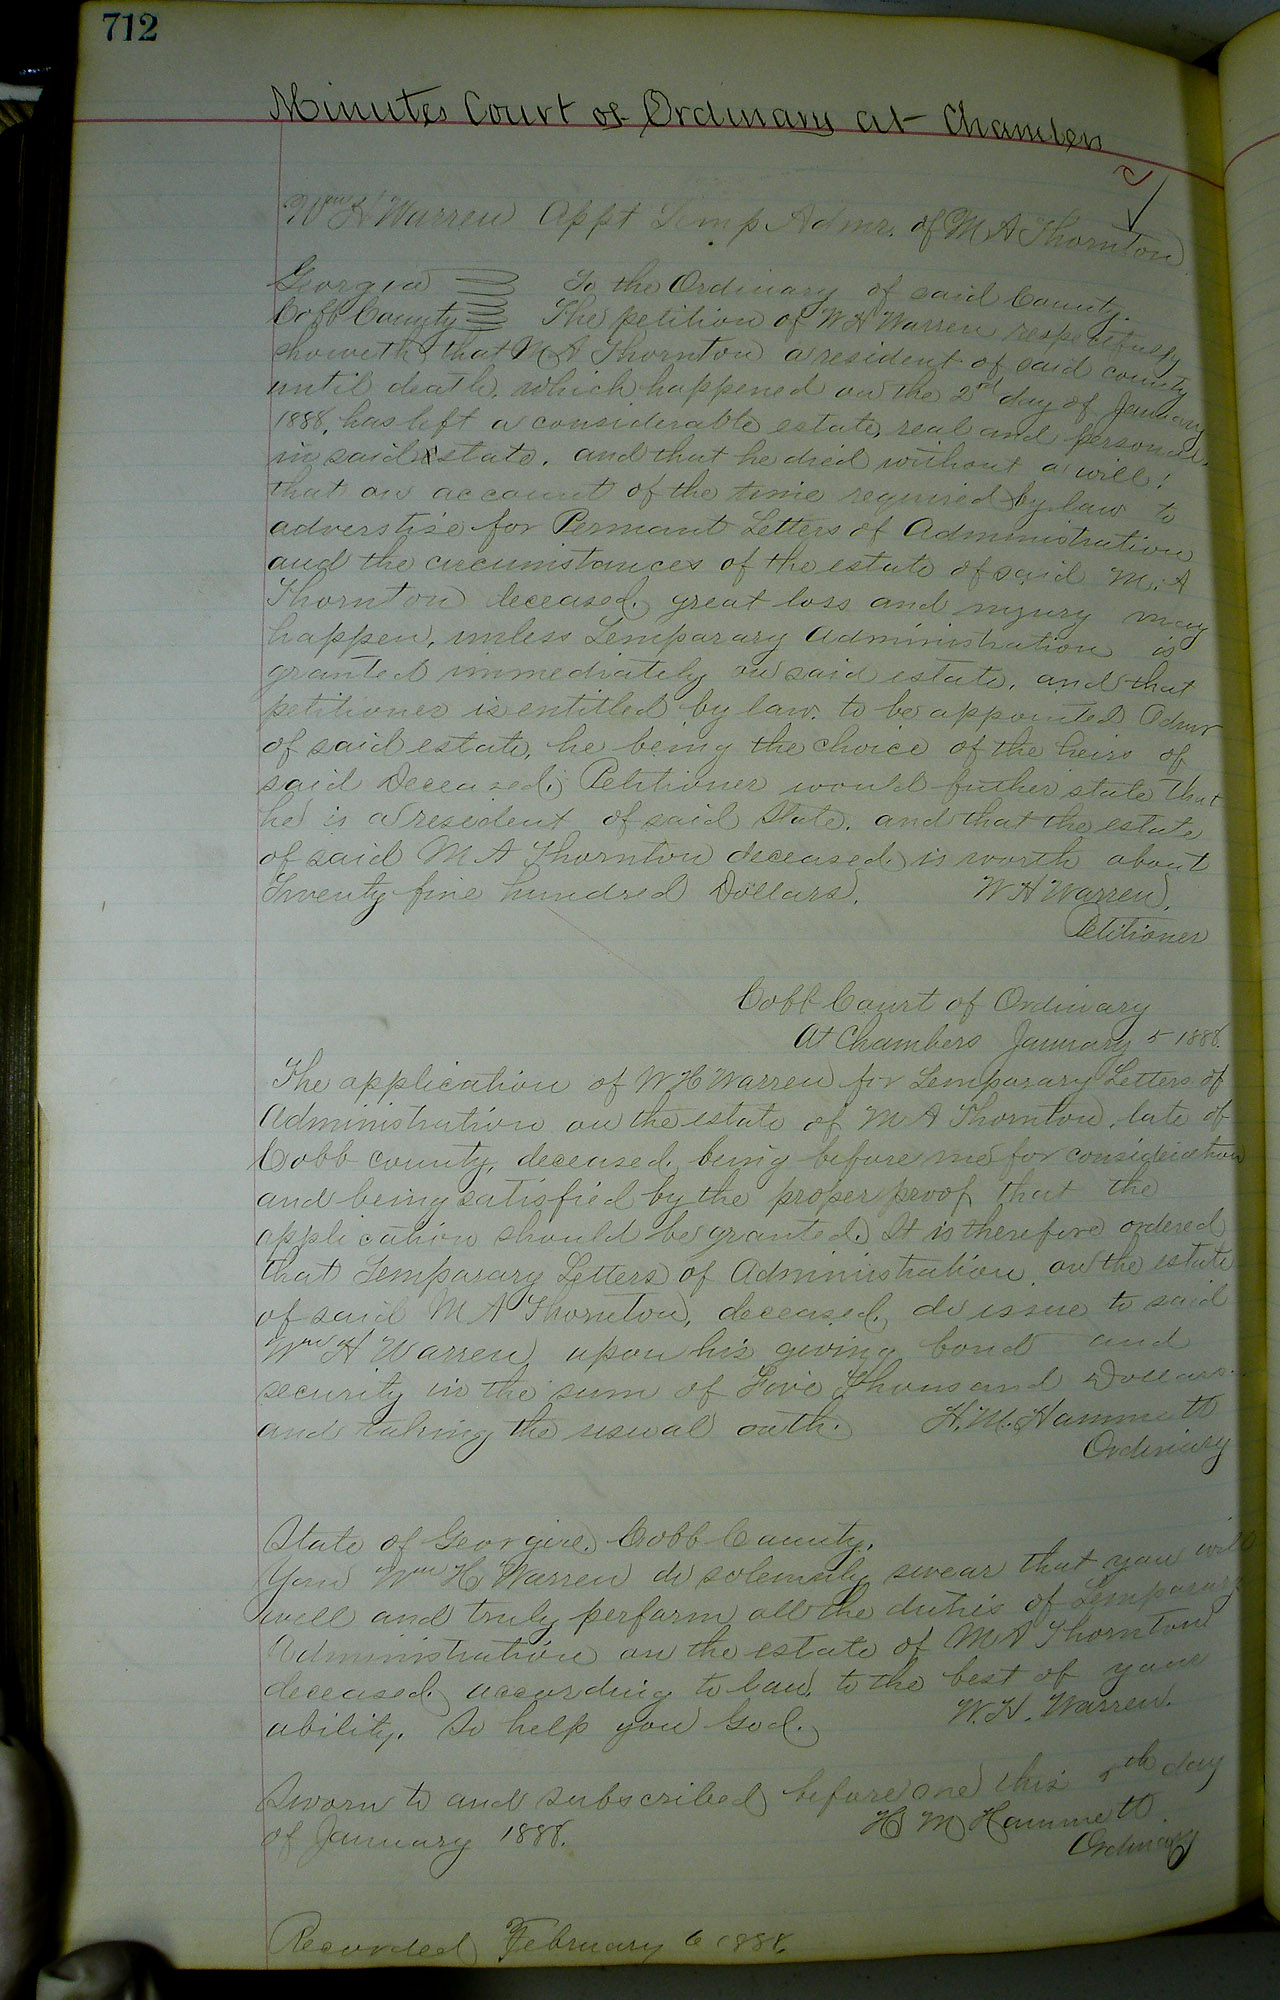 712
Minutes Court of Ordinary at Chambers
Wm H Warren Appt Temp Admr. of M A Thornton
Georgia To the Ordinary of said County.
Cobb County The petition of W H Warren respectfully
showeth, that M A Thornton a resident of said county
until death, which happened on the 2nd day of January
1888, has left a considerable estate, real and personal,
in said state, and that he died without a will;
that on account of the time required by law to
adverstise for Permant Letters of Administration
and the circumstances of the estate of said M. A
Thornton deceased, great loss and injury may
happen, unless Temparary Administration is
granted immediately on said estate, and that
petitioner is entitled by law, to be appointed Admr
of said estate, he being the choice of the heirs of
said Deceased; Petitioner would futher state that
he is a resident of said State, and that the estate
of said M A Thornton deceased, is worth about
Twenty five hundred Dollars. W H Warren,
Petitioner
Cobb Court of Ordinary
At Chambers January 5 1888.
The application of W H Warren for Temparary Letters of
Administration on the estate of M A Thornton, late of
Cobb county, deceased, being before me for consideration
and being satisfied by the proper proof, that the
application should be granted. It is therefore ordered
that Temparary Letters of Administration, on the estate
of said M A Thornton, deceased, do issue to said
Wm H Warren upon his giving bond and
security in the sum of Five Thousand Dollars.
and taking the usual oath. H. M. Hammett
Ordinary
State of Georgia, Cobb County.
You Wm H Warren do solemnly swear that you will
well and truly perform all the duties of Temparary
Administration on the estate of M A Thornton
deceased, according to law, to the best of your
ability. So help you God. W. H. Warren.
Sworn to and subscribed before me this 5th day
of January 1888. H M Hammett
Ordinary
Recorded February 6 1888.